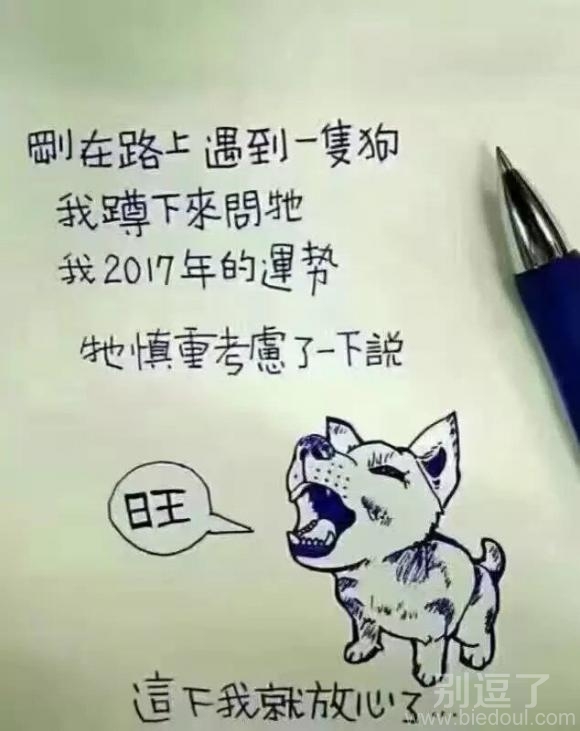 剛在路上遇到一隻狗
我蹲下來問牠
我2017年的運勢
牠慎重考慮了一下說
旺
這下我就放心了...
別逗了
www.biedoul.com